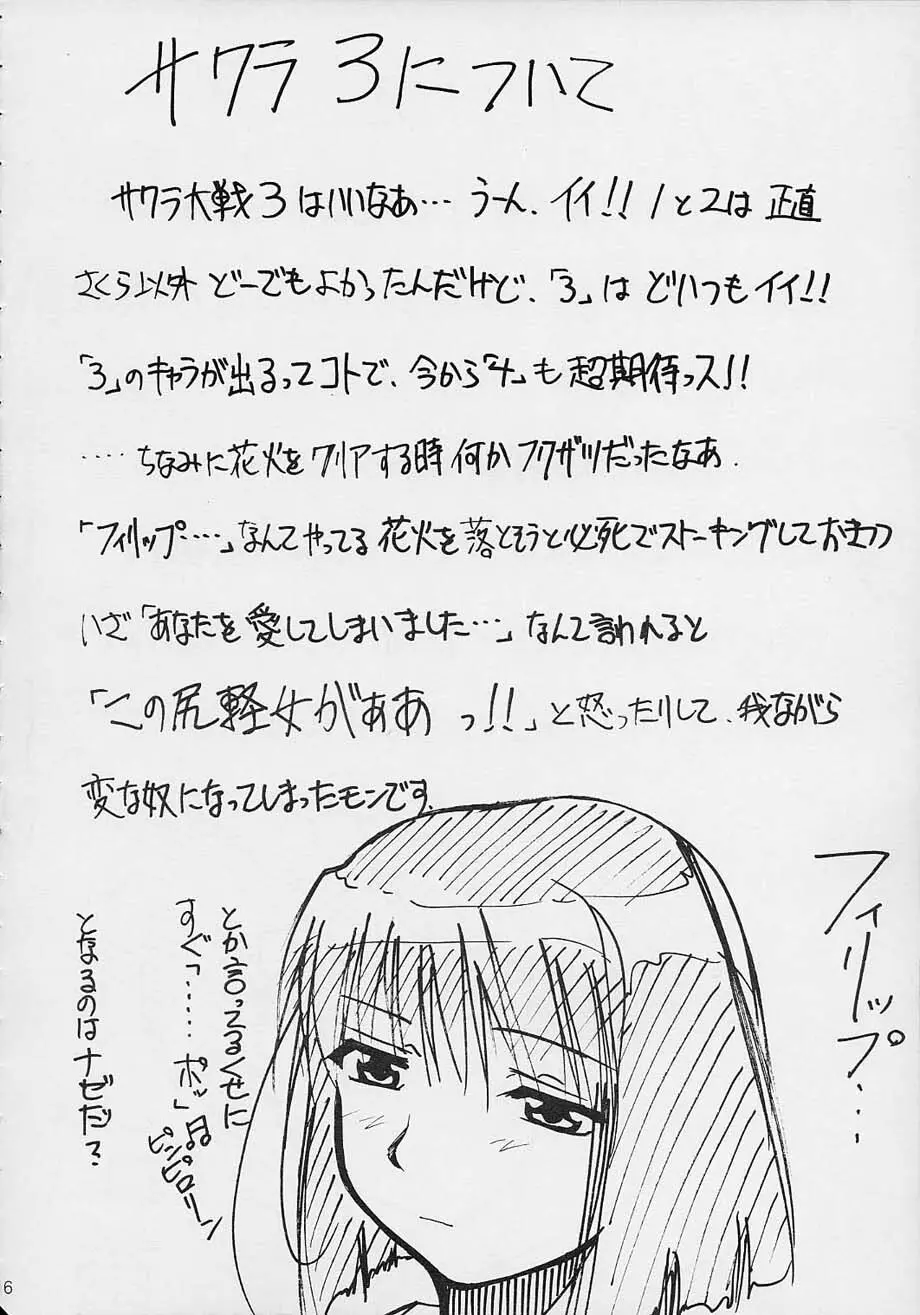 サクラ3について
サクラ大戦3はいいなあ…うーん、イイ!!1と2は正直
さくら以外どーでもよかったんだけど、「3」はどいつもイイ!!
「3」のキャラが出るってコトで、今から「4」も超期待っス!!
‥‥ちなみに花火をクリアする時何かフクザツだったなあ.
「フィリップ‥‥」なんてやってる花火を落とそうと必死でストーキングしておきつつ
いざ「あなたを愛してしまいました…」なんて言われると
「この尻軽女がぁあっ!!」と怒ったりして、我ながら
変な奴になってしまったモンです.
フィリップ…
とか言ってるくせに
すぐ「‥‥‥ポッ」
ピンピロリーン
となるのはナゼだ?
6